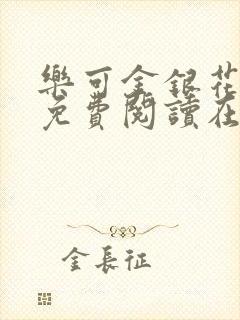 樂可金銀花
免費閱讀在
金長征